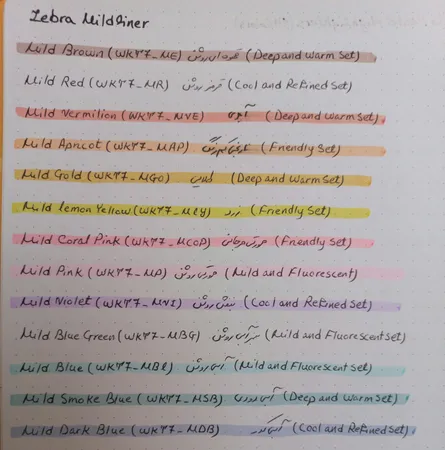 Zebra Mildliner
Mild Brown (WKT7_ME) قهوه ای روشن (Deep and Warm Set)
Mild Red (WKT7_MR) قرمز روشن (Cool and Refined Set)
Mild Vermilion (WKT7_MVE) آجری (Deep and Warm Set)
Mild Apricot (WKT7_MAP) (Friendly Set)
Mild Gold (WKT7_MGO) طلایی (Deep and Warm Set)
Mild Lemon Yellow (WKT7_MLY) زرد (Friendly Set)
Mild Coral Pink (WKT7_MCOP) صورتی مرجانی (Friendly Set)
Mild Pink (WKT7_MP) صورتی روشن (Mild and Fluorescent)
Mild Violet (WKT7_MVI) بنفش روشن (Cool and Refined Set)
Mild Blue Green (WKT7_MBG) سبزآبی روشن (Mild and Fluorescent Set)
Mild Blue (WKT7_MBL) آبی روشن (Mild and Fluorescent Set)
Mild Smoke Blue (WKT7_MSB) آبی دودی (Deep and Warm Set)
Mild Dark Blue (WKT7_MDB) (Cool and Refined Set)